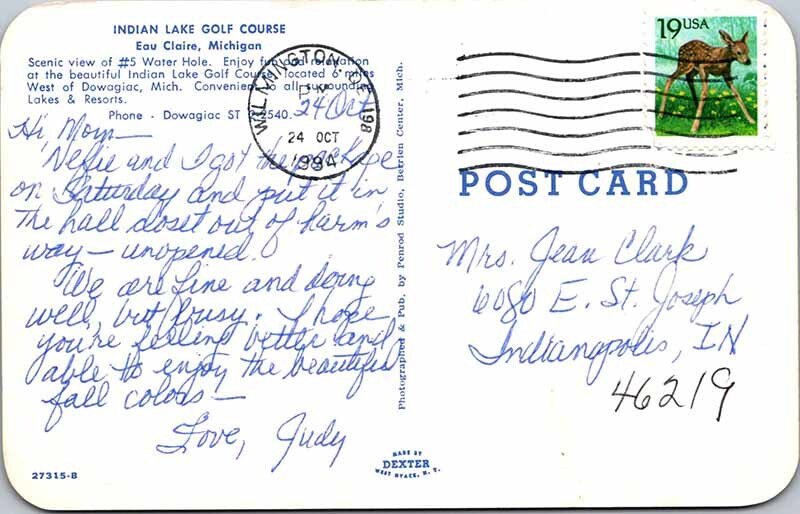 INDIAN LAKE GOLF COURSE
Eau Claire, Michigan
Scenic view of #5 Water Hole. Enjoy fun and relaxation
at the beautiful Indian Lake Golf Course, located 6 miles
West of Dowagiac, Mich. Convenient to all surrounding
Lakes & Resorts.
Phone - Dowagiac ST 2-5540.
24 Oct
Hi Mom—
Nellie and I got the package
on Saturday and put it in
the hall closet out of harm's
way — unopened.
We are fine and doing
well, but busy. I hope
you're feeling better and
able to enjoy the beautiful
fall colors —
Love, Judy
27315-B
Photographed & Pub. by Penrod Studio, Berrien Center, Mich.
MADE BY
DEXTER
WEST NYACK, N. Y.
WILMINGTON DE 198
24 OCT
1994
19 USA
POST CARD
Mrs. Jean Clark
6080 E. St. Joseph
Indianapolis, IN
46219